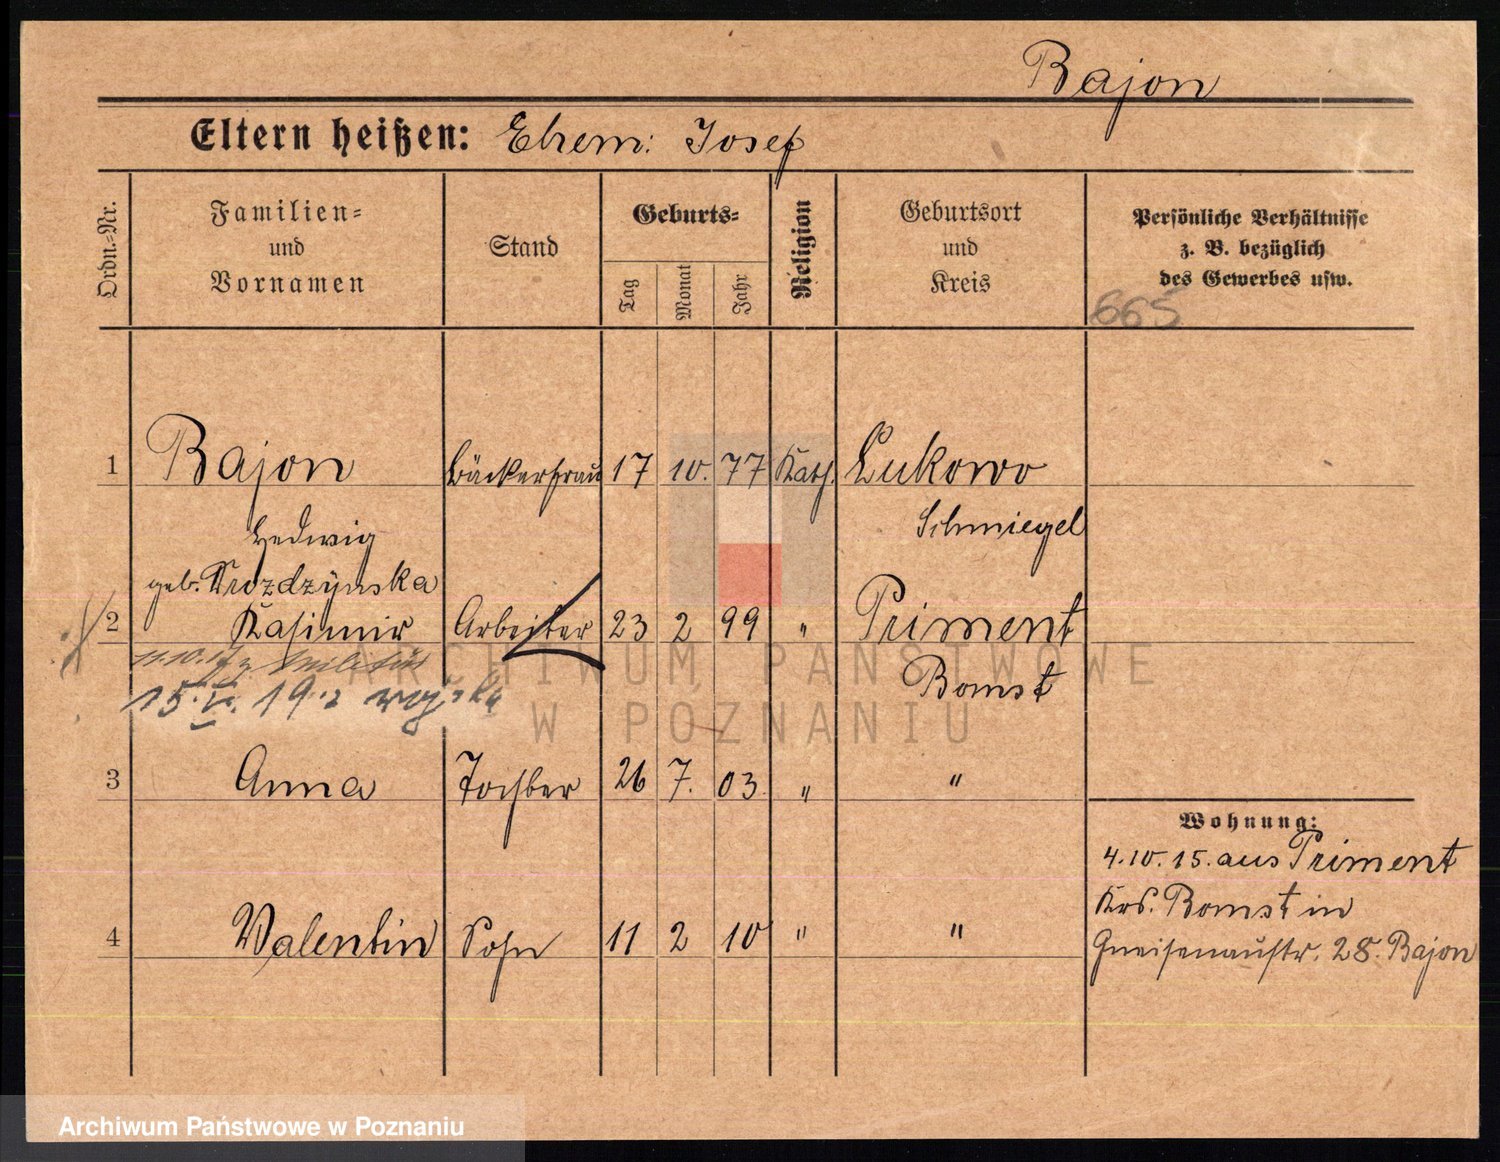 Bajon
Eltern heißen: Ehem: Josef
Ordn.-Nr.
Familien- und Vornamen
Stand
Geburts-
Tag
Monat
Jahr
Religion
Geburtsort und Kreis
Persönliche Verhältnisse z. B. bezüglich des Gewerbes usw.
665
1 Bajon Bäckerfrau 17 10. 77 Kath. Lukowo
Hedwig Schmiegel
geb.
2 Kasimir Arbeiter 23 2 99 " Priment
Militär Bomst
15. 19 wojska
3 Anna Tochter 26 7. 03. " "
Wohnung:
4.10.15. aus Priment
Krs. Bomst in
4 Valentin Sohn 11 2 10 " "
Gneisenaustr. 28. Bajon
ARCHIWUM PAŃSTWOWE
W POZNANIU
Archiwum Państwowe w Poznaniu